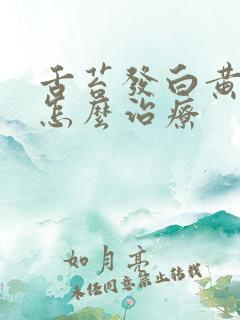 舌苔發白黃
怎麼治療
如月亮
未经同意禁止转载